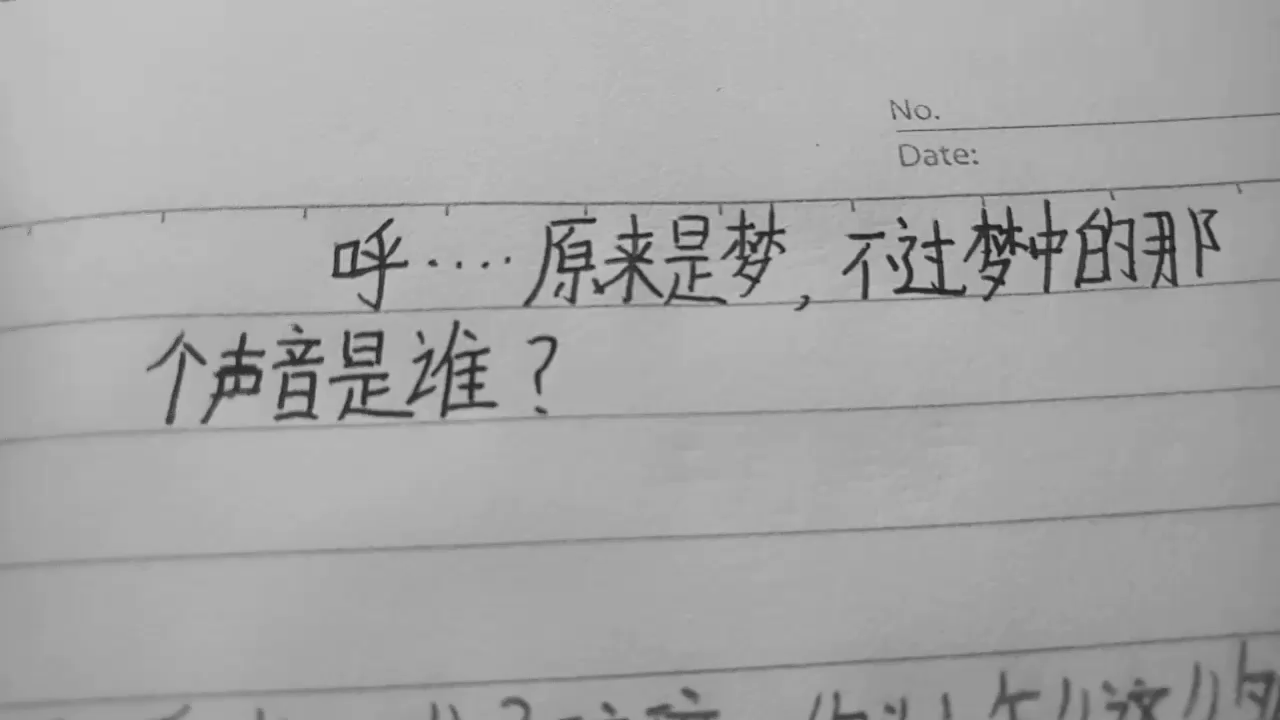 No.
Date:
呼····原来是梦，不过梦中的那
个声音是谁？